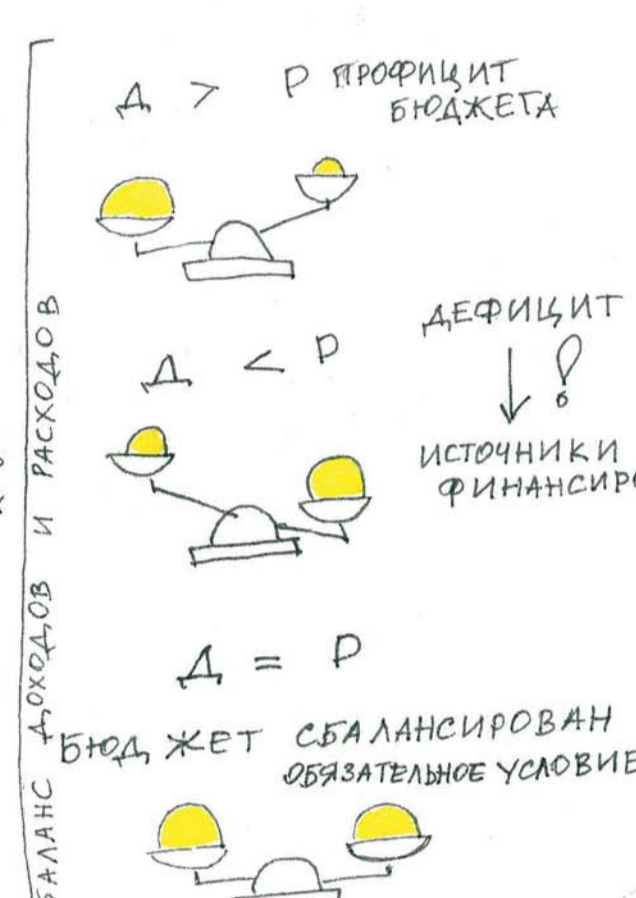 БАЛАНС ДОХОДОВ И РАСХОДОВ
Д > Р ПРОФИЦИТ
БЮДЖЕТА
Д < Р
ДЕФИЦИТ
ИСТОЧНИКИ
ФИНАНСИРО
Д = Р
БЮДЖЕТ СБАЛАНСИРОВАН
ОБЯЗАТЕЛЬНОЕ УСЛОВИЕ